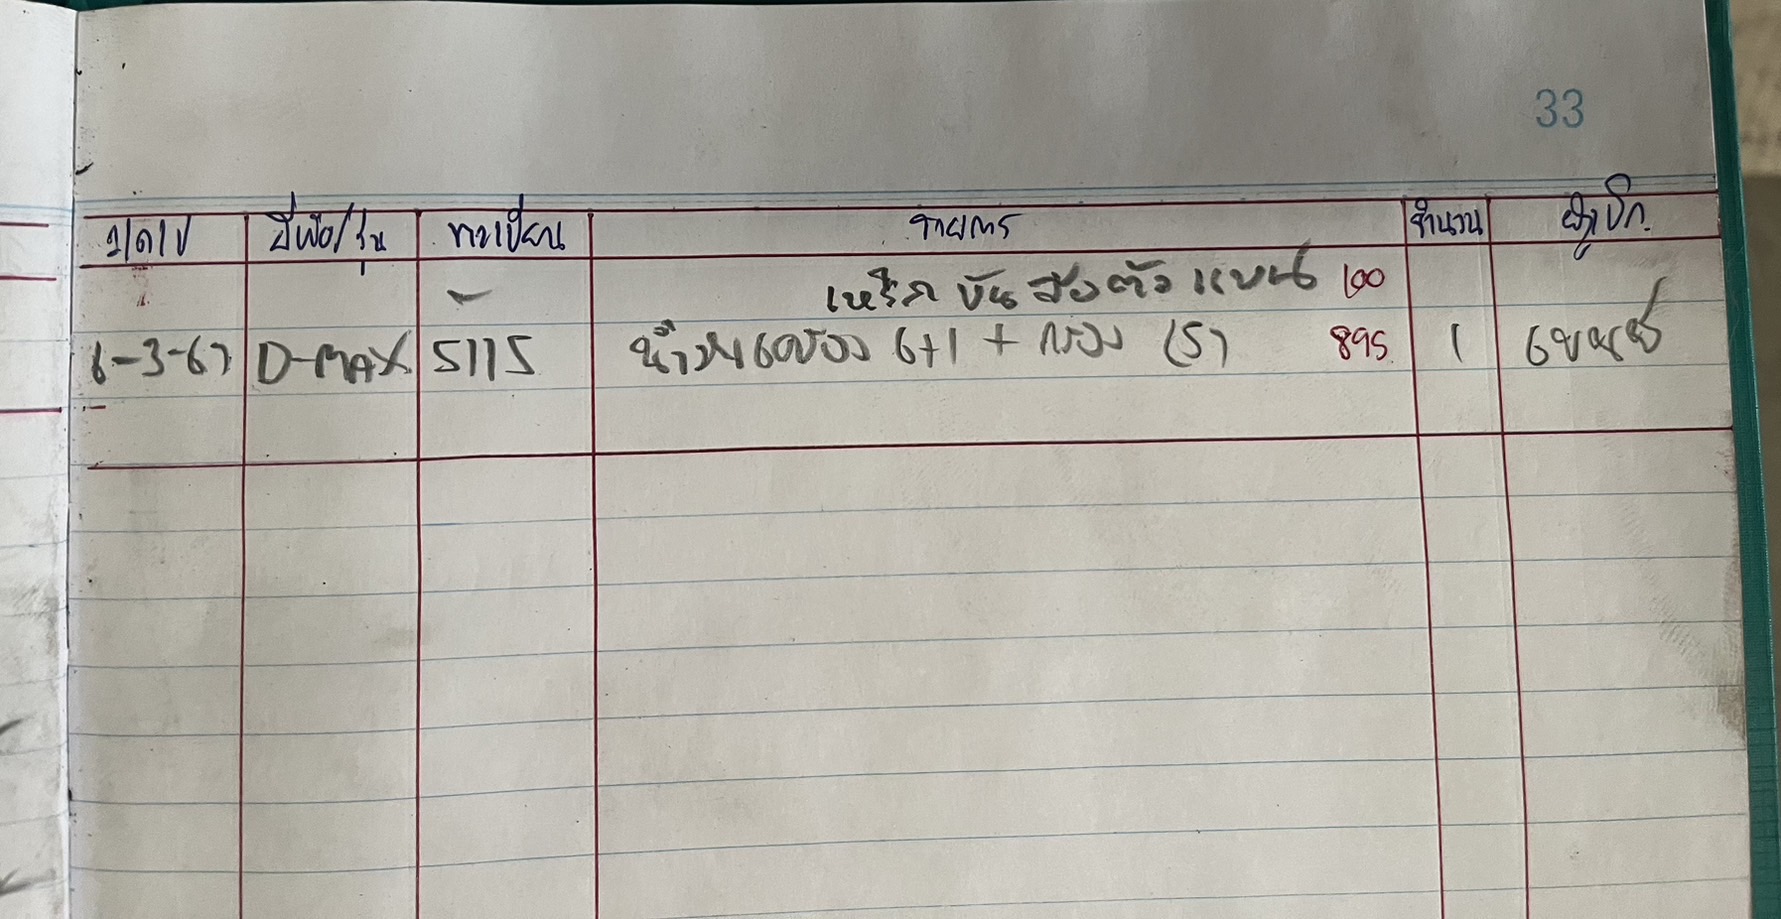 33
ว/ด/ป ยี่ห้อ/รุ่น ทะเบียน รายการ จำนวน ผู้เบิก
เหล็ก ขัน ตัว แบน 100
6-3-67 D-MAX 5115 น้ำมันเครื่อง 6+1 + กรอง (5) 895 1